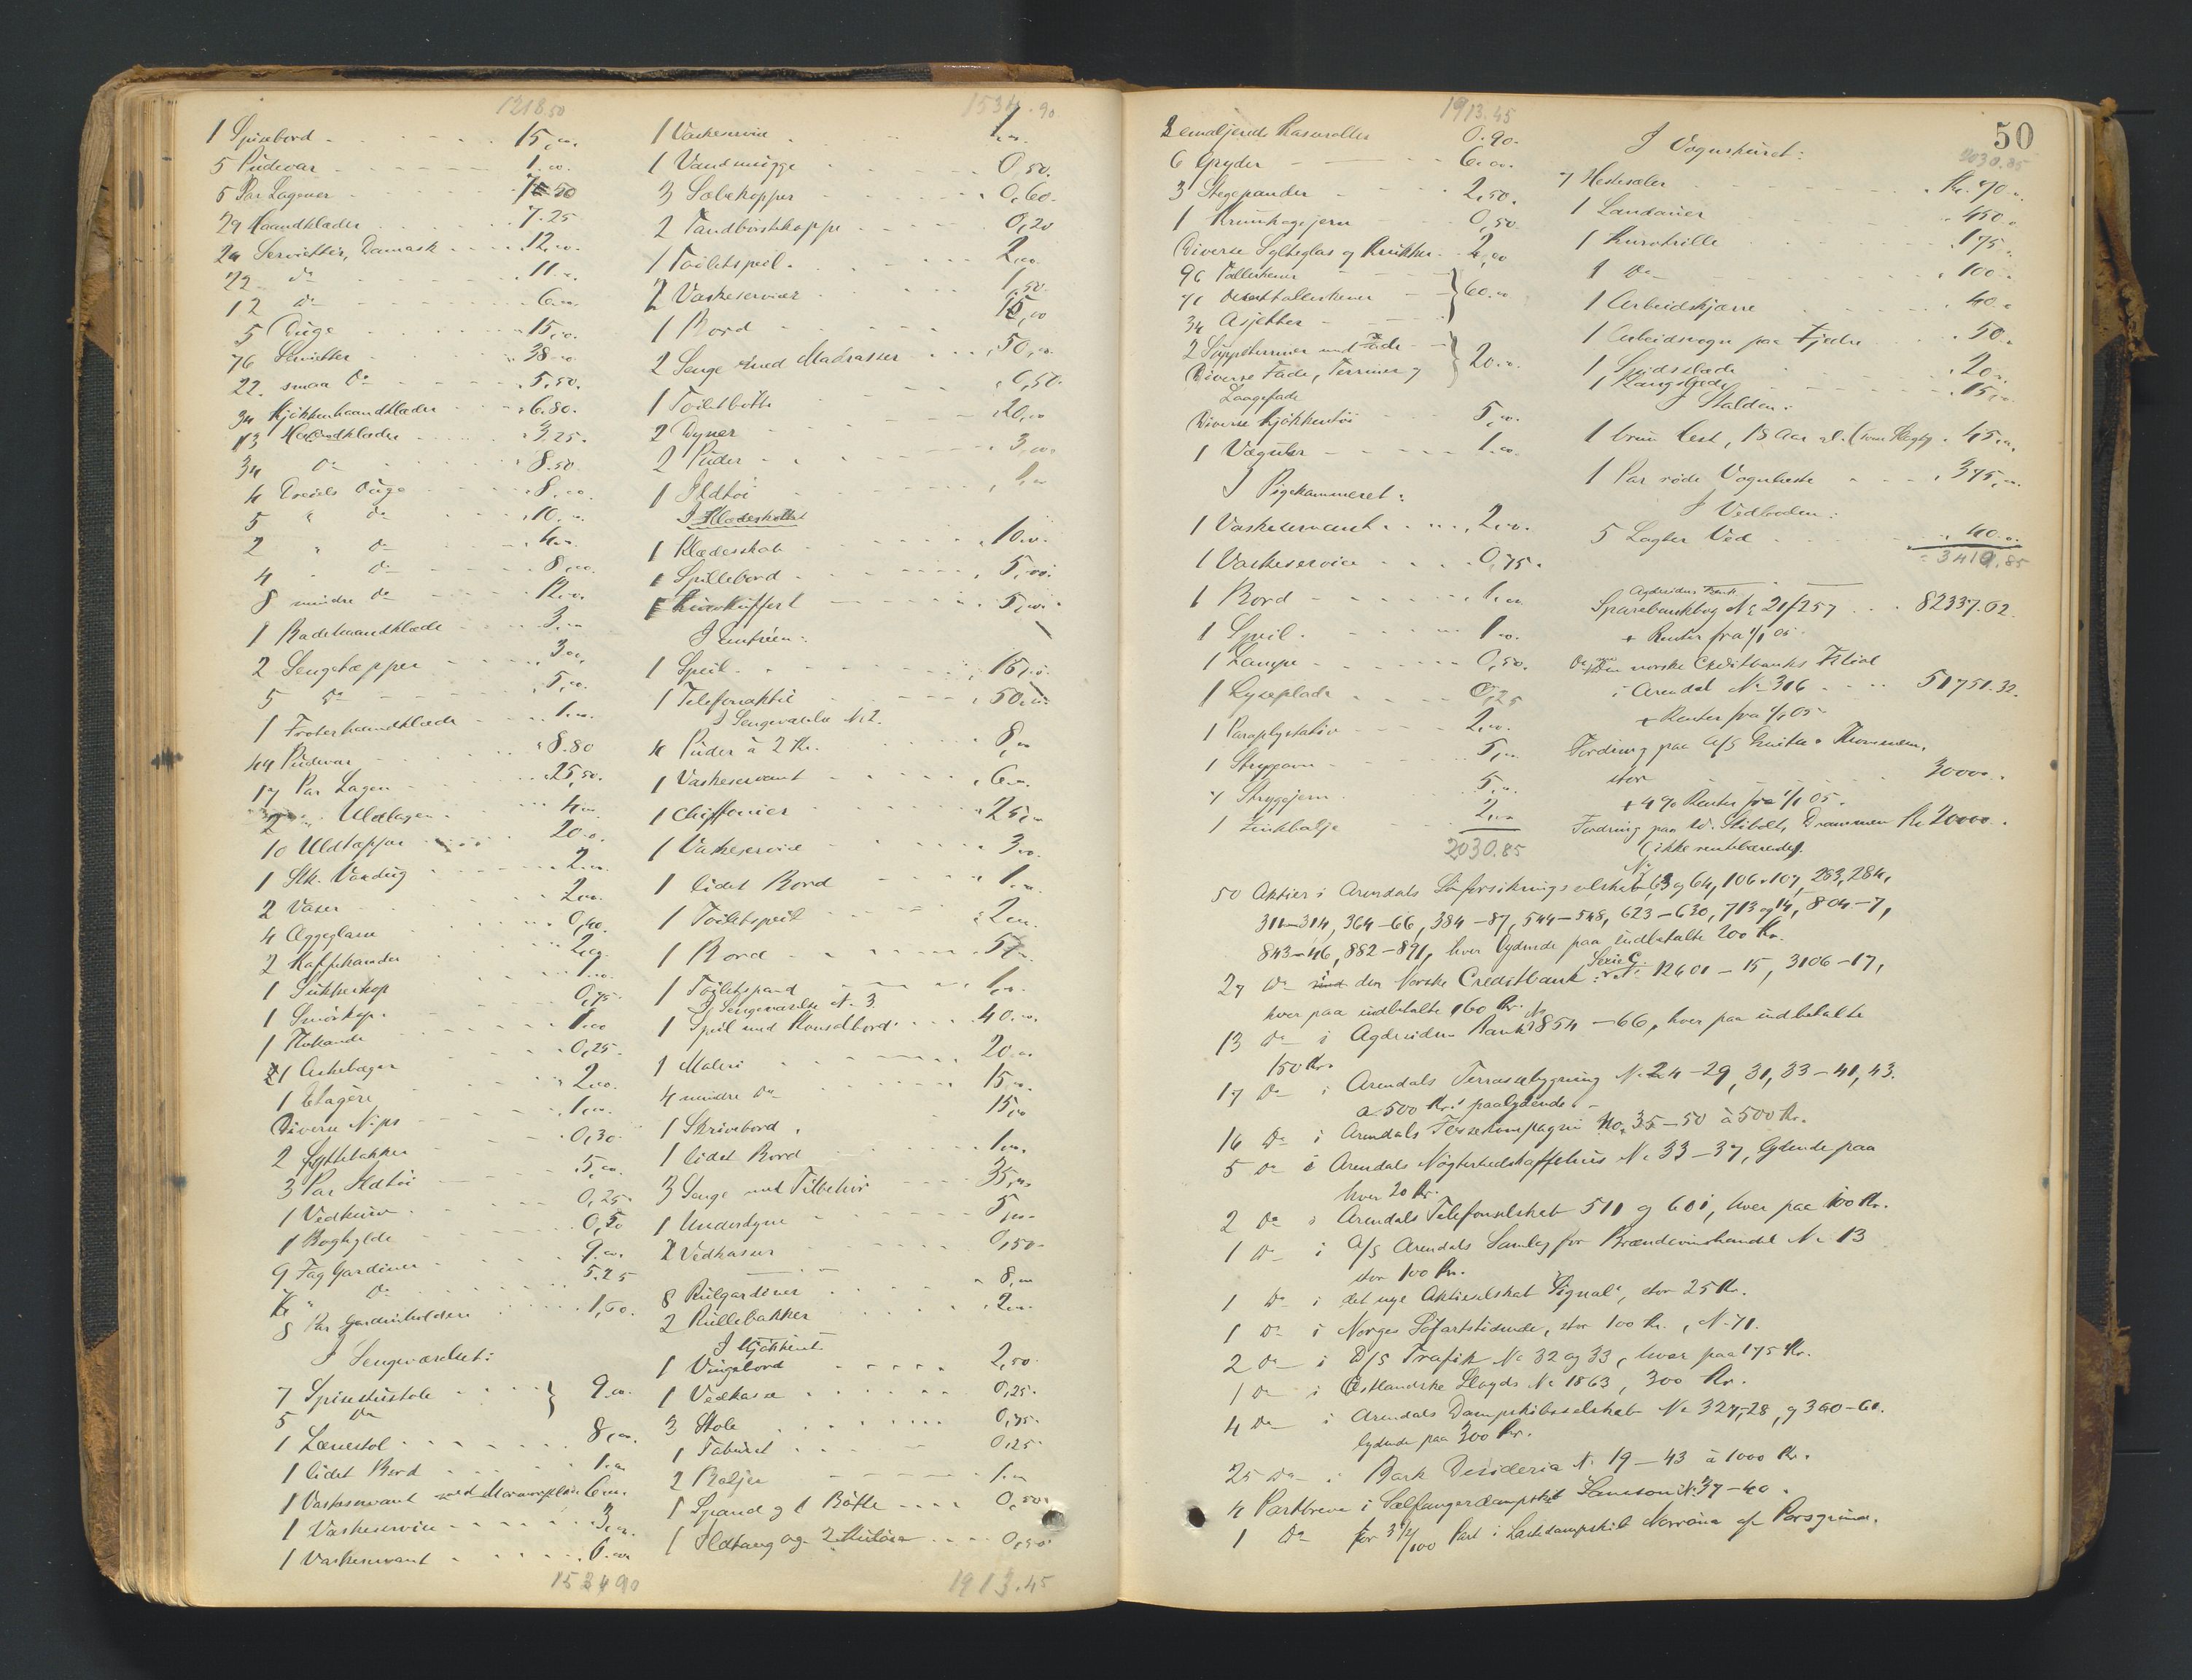 1218.50
1 Spisebord 15,00.
5 Pudevar 1.00.
5 Par Lagener 7.50
29 Haandklæder 7.25
24 Servietter, Damask 12.00.
22 do 11.
12 do 6.00
5 Duge 15,00.
76 Servietter 38.00
22 smaa do 5.50.
34 Kjökkenhaandklæder 6.80.
13 Haandklæder 3.25.
34 do 8.50
4 Dreiels Duge 8,00.
5 " do 10,00.
2 " do 4.00
4 " do 8,00.
8 mindre do 12.00.
1 Badehaandklæde 3.00
2 Sengetæpper 3.00.
5 do 5,00.
1 Froterhaandklæde 1.00.
44 Pudevar 8.80
17 Par Lagen 25,50.
2 Uldlagen 4.00
10 Uldtæpper 20.00
1 Stk. Voxdug 2.00.
2 Vaser 2.00.
4 Æggeglass 0,40.
2 Kaffekander 2.00.
1 Sukkerkop 1.00.
1 Smörkop 0,75.
1 Thekande 1.00
1 Askebæger 0,25.
1 Etagère 2.00.
Diverse Nips 1,00.
2 Syltebakker 0,30.
3 Par Ildtöi 5,00.
1 Vedkurv 0,25.
1 Boghylde 0,50
9 Fag Gardiner 9.00.
" do 5.25
8 Par Gardinholdere 1,60.
I Sengeværelset:
7 Spisestuestole
5 do 9.00.
1 Lænestol 8,00.
1 lidet Bord 1.00
1 Vaskeservant med Marmorplade 6.00.
1 Vaskeservice 3,00.
1 Vaskeservant 6.00
1534 90
1534.90
1 Vaskeservice 1.00.
1 Vandmugge 0,50.
3 Sæbekopper 0,60.
2 Tandbørstekoppe 0,20
1 Toiletspeil 2,00.
2 Vaskeservicer 1,50.
1 Bord 15,00
2 Senge med Madrasser 50,00.
1 Toiletbøtte 0,50.
2 Dyner 20,00
2 Puder 3,00.
1 Ildtöi 1,00
I Klædeskottet
1 Klædesskab 10.00.
1 Spillebord 5,00.
5,00.
I Entréen:
1 Speil 15,00.
1 Telefonaktie 50,00.
I Sengeværelse No 2.
4 Puder à 2 Kr. 8,00
1 Vaskeservant 6.00.
1 Chiffonier 25,00
1 Vaskeservice 3.00.
1 lidet Bord 1.00.
1 Toiletspeil 2.00.
1 Bord 5,00.
1 Toiletspand 1,00.
I Sengeværelse No 3.
1 Speil med Konsolbord 40.00.
1 Maleri 20.00
4 mindre do 15,00.
1 Skrivebord 15,00
1 lidet Bord 1.00.
3 Senge med Tilbehör 35,00
1 Underdyne 5,00.
2 Vedkasser 0,50.
8 Rulgardiner 8,00
2 Rullebakker 2.00.
I Kjökkenet
1 Vingebord 2,50.
1 Vedkasse 0,25.
3 Stole 0,75.
1 Taburet 0,25.
2 Baljer 1.00
1 Spand og 1 Bötte 0,50.
1 Ildtang og 0,50.
1913.45
50
1913.45
2 emaljerede Kasseroller 0.90.
6 Gryder 6.00.
3 Stegepander 2,50.
1 Krumkagejern 0,50.
Diverse Sylteglas og Krukker 2,00
96 Tallerkener
71 Desserttallerkener
34 Asjetter 60.00
2 Suppeterriner med Fade
Diverse Fade, Terriner og
Laagefade 20.00
Diverse Kjökkentöi 5,00.
1 Væguhr 1.00.
I Pigekammeret:
1 Vaskeservant 2,00.
1 Vaskeservice 0,75.
1 Bord 1.00
1 Speil 1.00.
1 Lampe 0,50.
1 Lyseplade 0,25
1 Paraplystativ 2.00.
1 Strygeovn 5,00
7 Strygejern 5,00.
1 Zinkbalje 2,00
2030.85
I Vognskuret:
2030.85
7 Hesteseler Kr. 70.00
1 Landauer 450.
1 Kurvtrille 175.
1 do 100.
1 Arbeidskjærre 40.
1 Arbeidsvogn paa Fjedre 50.
1 Spidsslæde 20.
1 Langslæde 15,00
I Stalden:
1 brun Hest, 18 Aar gl. 45,00.
1 Par röde Vognheste 375,00.
I Vedboden:
5 Lagter Ved 40.00.
3419.85
Agdesidens Bank
Sparebankbog No 21/257 82337.02.
+ Renter fra 1/1 05.
Do den norske Creditbanks Filial
i Arendal No 316 51751.32.
+ Renter fra 1/1 05
Fordring paa A/S
stor 30000.
+ 4 % Renter fra 1/1 05.
Fordring paa W. Stibolt, Drammen Kr 20000.
(ikke rentebærende).
50 Aktier i Arendals Söforsikringsselskab No 63 og 64, 106-107, 283, 284,
311-314, 364-66, 384-87, 544-548, 623-630, 713 og 14, 804-7,
843-46, 882-891, hver lydende paa indbetalte 200 Kr.
27 do i den Norske Creditbank Serie C. No 12601-15, 3106-17,
hver paa indbetalte 160 Kr.
13 do i Agdesidens Bank No 854-66, hver paa indbetalte
150 Kr.
17 do i Arendals Terrassebygning No 24-29, 31, 33-41, 43.
a 500 Kr. paalydende.
16 do i Arendals Fossekompagni No. 35-50 à 500 Kr.
5 do i Arendals Nøgterhedskaffehus No 33-37, lydende paa
hver 20 Kr.
2 do i Arendals Telefonselskab 511 og 601, hver paa 100 Kr.
1 do i A/S Arendals Samlag for Brændevinshandel No 13
stor 100 Kr.
1 do i det nye Aktieselskab "Signal", stor 25 Kr.
1 do i Norges Söfartstidende, stor 100 Kr., No 71.
2 do i D/S Trafik No 32 og 33, hver paa 175 Kr.
1 do i Østlandske Lloyds No 1863, 300 Kr.
4 do i Arendals Dampskibsselskab No 327-28, og 360-61.
lydende paa 300 Kr.
25 do i Bark Desideria No 19-43 à 1000 Kr.
4 Partbreve i Sælfangerdampskib Samson No 37-40.
1 do for 3 1/2/100 Part i Lastedampskib Norröna af Porsgrund.